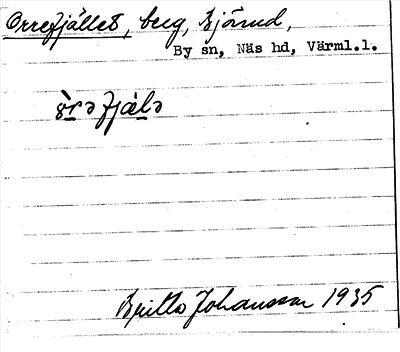 Orrefjället, berg, Bjärud,
By sn, Näs hd, Värml.l.
òrə fjælə
Britta Johansson 1935